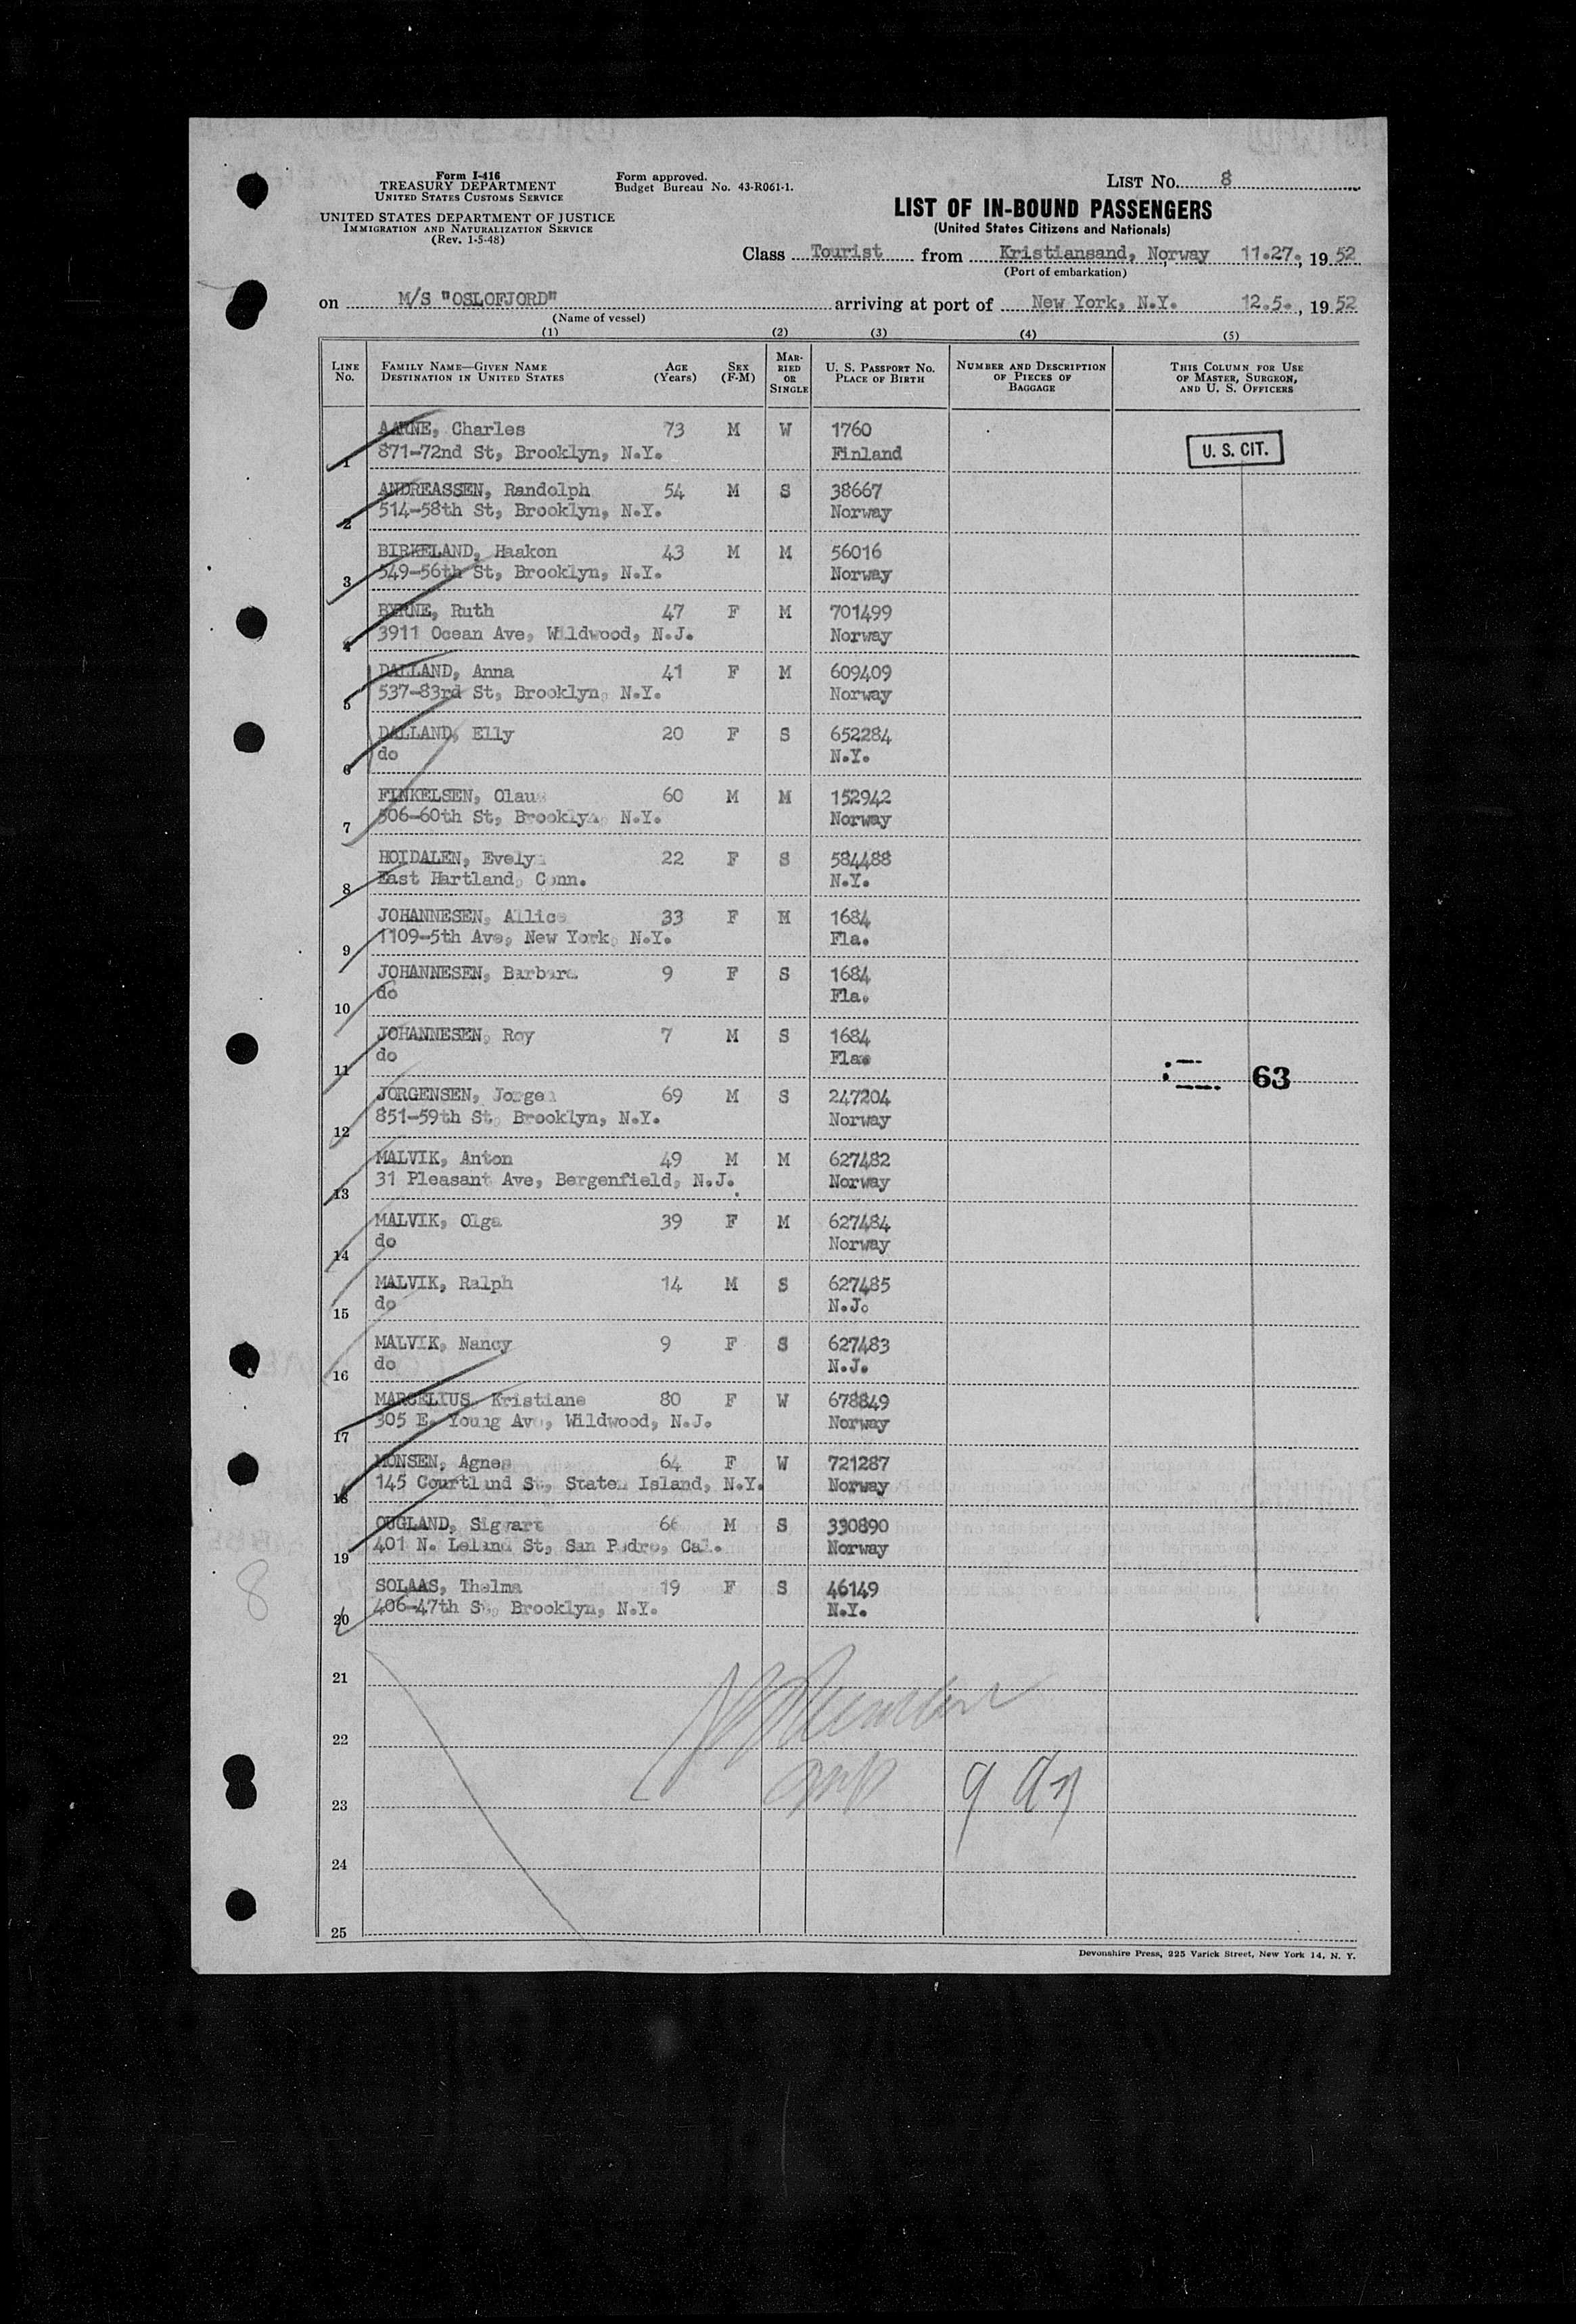 Form I-416
TREASURY DEPARTMENT
UNITED STATES CUSTOMS SERVICE
UNITED STATES DEPARTMENT OF JUSTICE
IMMIGRATION AND NATURALIZATION SERVICE
(Rev. 1-5-48)
Form approved.
Budget Bureau No. 43-R061-1.
LIST No. 8
LIST OF IN-BOUND PASSENGERS
(United States Citizens and Nationals)
Class Tourist from Kristiansand, Norway 11.27., 1952
(Port of embarkation)
on M/S "OSLOFJORD" arriving at port of New York, N.Y. 12.5., 1952
(Name of vessel)
(1) (2) (3) (4) (5)
LINE No. FAMILY NAME—GIVEN NAME DESTINATION IN UNITED STATES AGE (Years) SEX (F-M) MARRIED OR SINGLE U. S. PASSPORT No. PLACE OF BIRTH NUMBER AND DESCRIPTION OF PIECES OF BAGGAGE THIS COLUMN FOR USE OF MASTER, SURGEON, AND U. S. OFFICERS
AARNE, Charles 73 M W 1760
1 871-72nd St, Brooklyn, N.Y. Finland U. S. CIT.
ANDREASSEN, Randolph 54 M S 38667
2 514-58th St, Brooklyn, N.Y. Norway
BIRKELAND, Haakon 43 M M 56016
3 549-56th St, Brooklyn, N.Y. Norway
BYRNE, Ruth 47 F M 701499
4 3911 Ocean Ave, Wildwood, N.J. Norway
DALLAND, Anna 41 F M 609409
5 537-83rd St, Brooklyn, N.Y. Norway
DALLAND, Elly 20 F S 652284
6 do N.Y.
FINKELSEN, Olaus 60 M M 152942
7 506-60th St, Brooklyn, N.Y. Norway
HOIDALEN, Evelyn 22 F S 584488
8 East Hartland, Conn. N.Y.
JOHANNESEN, Allice 33 F M 1684
9 1109-5th Ave, New York, N.Y. Fla.
JOHANNESEN, Barbara 9 F S 1684
10 do Fla.
JOHANNESEN, Roy 7 M S 1684
11 do Fla.
63
JORGENSEN, Jorgen 69 M S 247204
12 851-59th St, Brooklyn, N.Y. Norway
MALVIK, Anton 49 M M 627482
13 31 Pleasant Ave, Bergenfield, N.J. Norway
MALVIK, Olga 39 F M 627484
14 do Norway
MALVIK, Ralph 14 M S 627485
15 do N.J.
MALVIK, Nancy 9 F S 627483
16 do N.J.
MARCELIUS, Kristiane 80 F W 678849
17 305 E. Young Ave, Wildwood, N.J. Norway
MONSEN, Agnes 64 F W 721287
18 145 Courtland St, Staten Island, N.Y. Norway
OUGLAND, Sigvart 66 M S 330890
19 401 N. Leland St, San Pedro, Cal. Norway
SOLAAS, Thelma 19 F S 46149
20 406-47th St, Brooklyn, N.Y. N.Y.
8
21
22
23
24
25
Devonshire Press, 225 Varick Street, New York 14, N. Y.